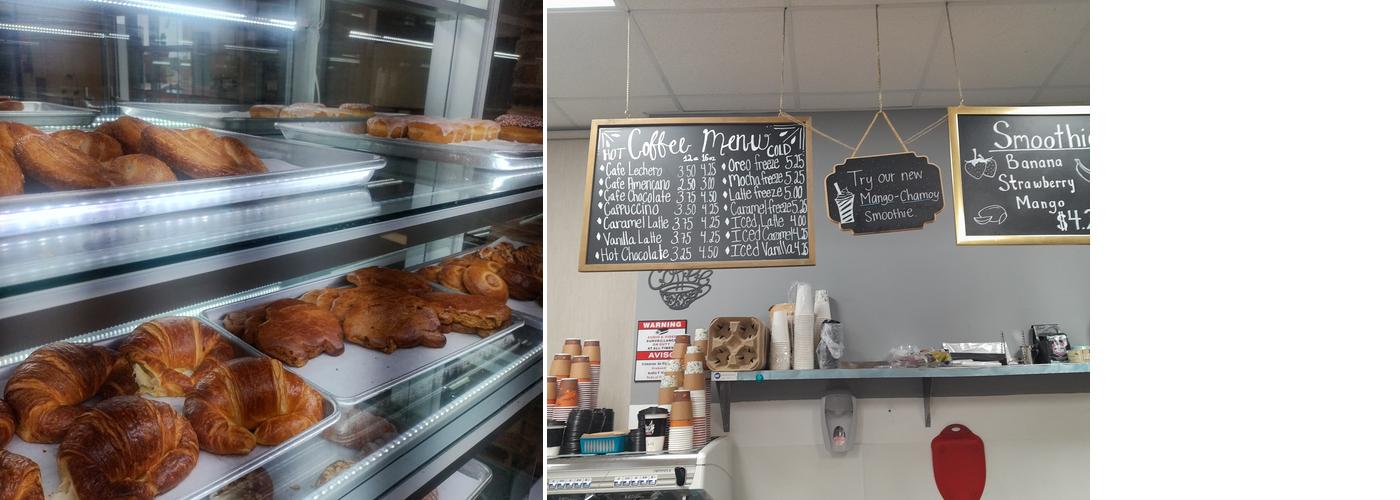 Coffee Menu
HOT
COLD
12oz 16oz
Cafe Lechero 3.50 4.25
Cafe Americano 2.50 3.00
Cafe Chocolate 3.75 4.50
Cappuccino 3.50 4.25
Caramel Latte 3.75 4.25
Vanilla Latte 3.75 4.25
Hot Chocolate 3.25 4.50
Oreo freeze 5.25
Mocha freeze 5.25
Latte freeze 5.00
Caramel freeze 5.25
Iced Latte 4.00
Iced Caramel 4.25
Iced Vanilla 4.25
Try our new
Mango-Chamoy
Smoothie
Smoothie
Banana
Strawberry
Mango
$4.2
COFFEE
WARNING
AUDIO & VIDEO
SURVEILLANCE
ON DUTY
AT ALL TIMES
AVISO